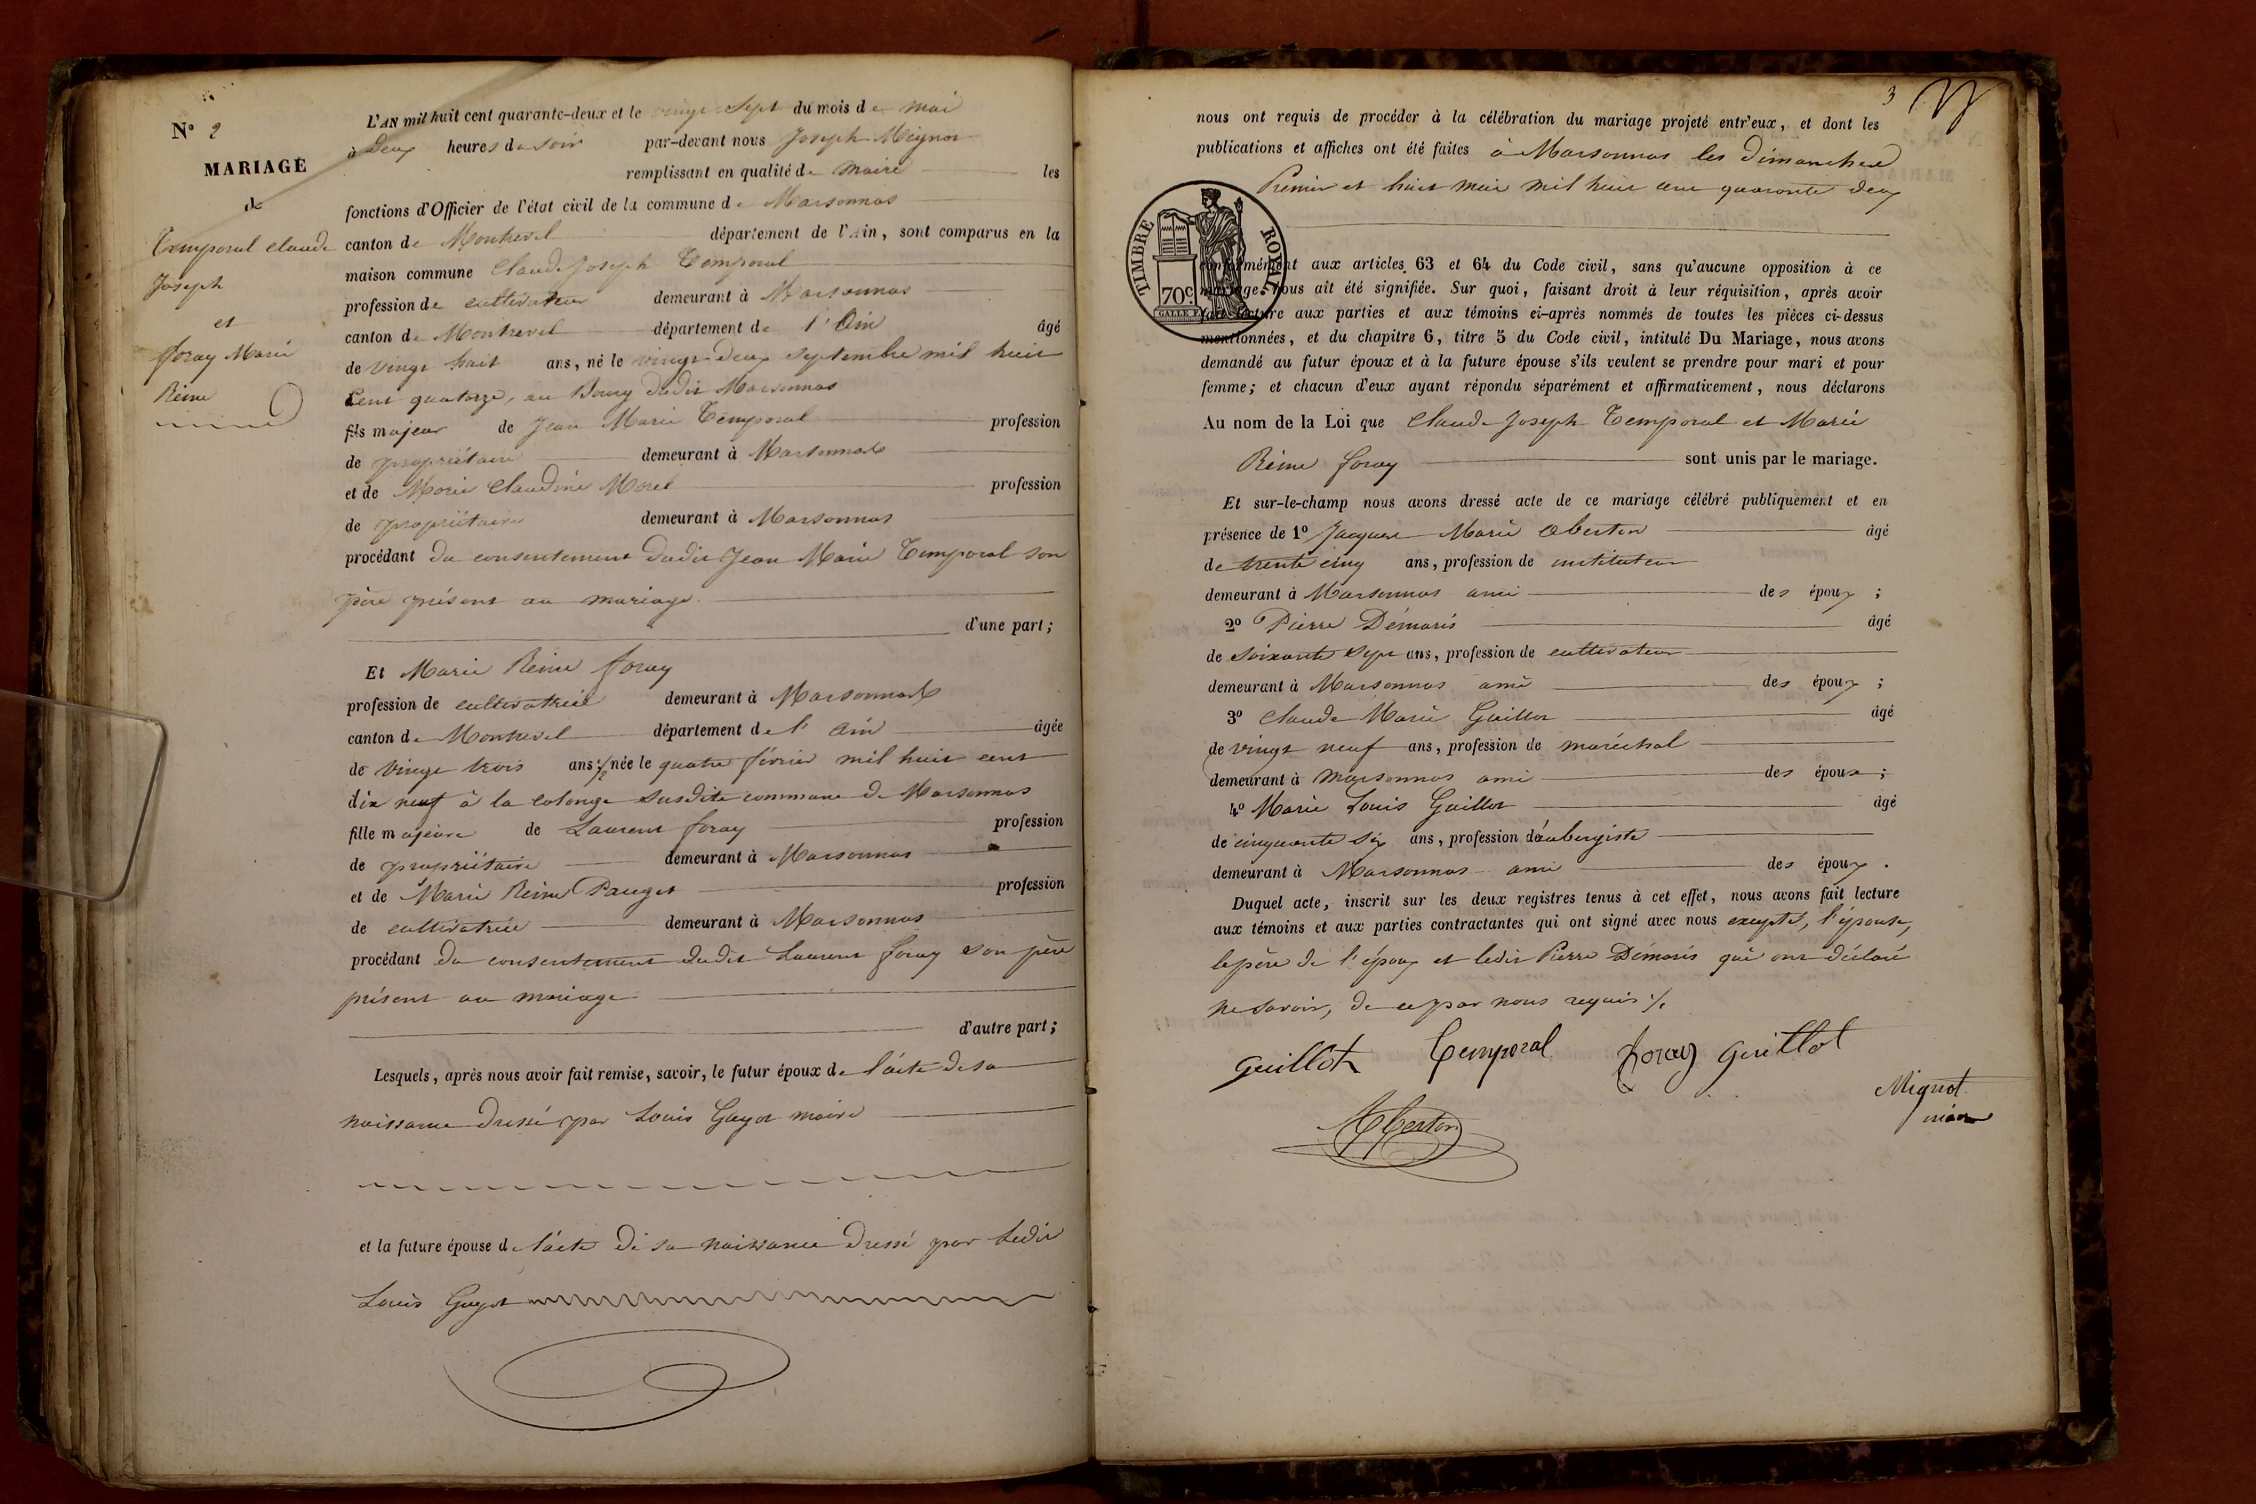 N° 2
MARIAGE
de
Temporal Claude
Joseph
et
foray Marie
Reine
L'AN mil huit cent quarante-deux et le vingt sept du mois de mai
à deux heures du soir par-devant nous Joseph Mignot
remplissant en qualité de maire les
fonctions d'Officier de l'état civil de la commune de Marsonnas
canton de Montrevel département de l'Ain, sont comparus en la
maison commune Claude Joseph Temporal
profession de cultivateur demeurant à Marsonnas
canton de Montrevel département de l'Ain âgé
de vingt huit ans, né le vingt deux septembre mil huit
Cent quatorze, au Bourg dudit Marsonnas
fils majeur de Jean Marie Temporal profession
de propriétaire demeurant à Marsonnas
et de Marie Claudine Morel profession
de propriétaire demeurant à Marsonnas
procédant du consentement dudit Jean Marie Temporal son
père présent au mariage
d'une part;
Et Marie Reine foray
profession de cultivatrice demeurant à Marsonnas
canton de Montrevel département de l'Ain âgée
de vingt trois ans, née le quatre février mil huit cent
dix neuf à la Colonge susdite commune de Marsonnas
fille majeure de Laurent foray profession
de propriétaire demeurant à Marsonnas
et de Marie Reine Pauget profession
de cultivatrice demeurant à Marsonnas
procédant du consentement dudit Laurent foray son père
présent au mariage
d'autre part;
Lesquels, après nous avoir fait remise, savoir, le futur époux de l'acte de sa
naissance dressé par Louis Guyot maire
et la future épouse de l'acte de sa naissance dressé par ledit
Louis Guyot
3
nous ont requis de procéder à la célébration du mariage projeté entr'eux, et dont les
publications et affiches ont été faites à Marsonnas les dimanches
Premier et huit mai mil huit cent quarante deux
TIMBRE ROYAL
70c
GALLE F.
conformément aux articles 63 et 64 du Code civil, sans qu'aucune opposition à ce
mariage nous ait été signifiée. Sur quoi, faisant droit à leur réquisition, après avoir
fait lecture aux parties et aux témoins ci-après nommés de toutes les pièces ci-dessus
mentionnées, et du chapitre 6, titre 5 du Code civil, intitulé Du Mariage, nous avons
demandé au futur époux et à la future épouse s'ils veulent se prendre pour mari et pour
femme; et chacun d'eux ayant répondu séparément et affirmativement, nous déclarons
Au nom de la Loi que Claude Joseph Temporal et Marie
Reine foray sont unis par le mariage.
Et sur-le-champ nous avons dressé acte de ce mariage célébré publiquement et en
présence de 1° Jacques Marie Oberton âgé
de trente cinq ans, profession de instituteur
demeurant à Marsonnas ami des époux;
2° Pierre Démaris âgé
de soixante sept ans, profession de cultivateur
demeurant à Marsonnas ami des époux;
3° Claude Marie Guillot âgé
de vingt neuf ans, profession de maréchal
demeurant à Marsonnas ami des époux;
4° Marie Louis Guillot âgé
de cinquante six ans, profession d'aubergiste
demeurant à Marsonnas ami des époux.
Duquel acte, inscrit sur les deux registres tenus à cet effet, nous avons fait lecture
aux témoins et aux parties contractantes qui ont signé avec nous excepté, l'épouse,
le père de l'époux et ledit Pierre Démaris qui ont déclaré
ne savoir, de ce par nous requis ./.
guillot Temporal foray guillot
Mignot
maire